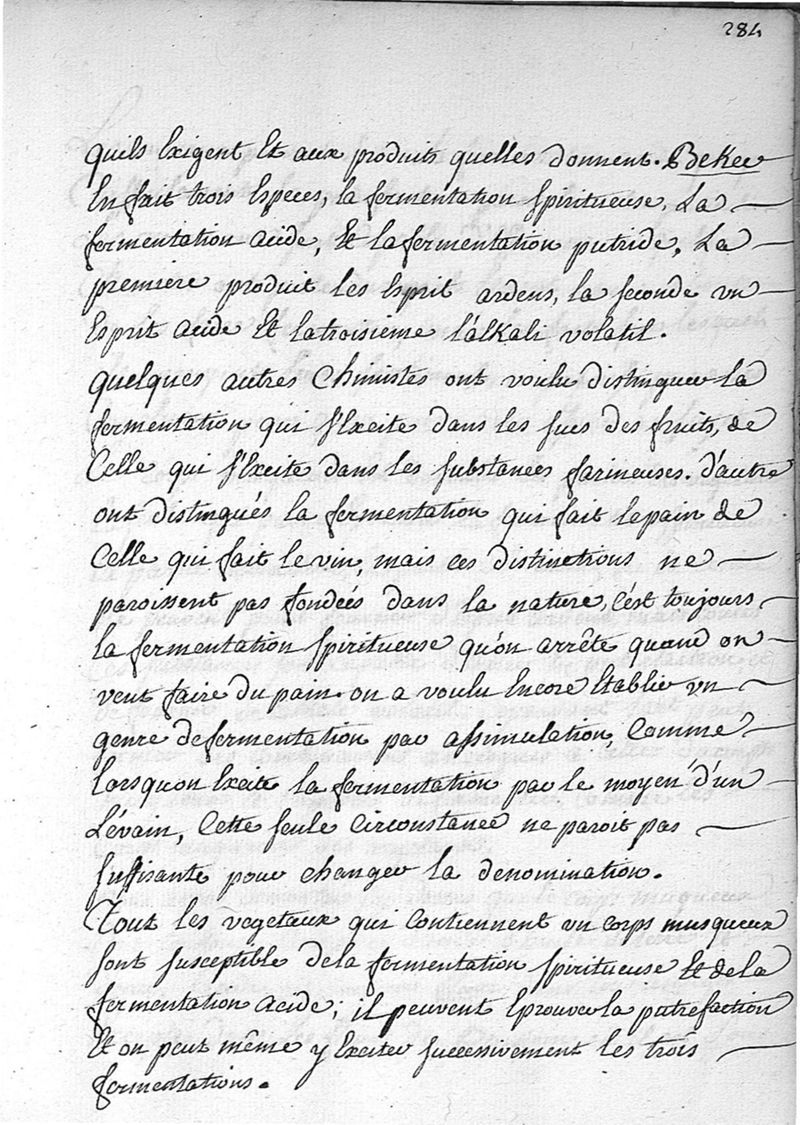 284
quils Exigent Et aux produits quelles donnent. Beker
En fait trois Especes, la fermentation spiritueuse, La
fermentation acide, Et la fermentation putride, La
premiere produit les Esprit ardens, la seconde un
Esprit acide Et la troisieme l'alkali volatil.
Quelques autres Chimistes ont voulu distinguer la
fermentation qui s'Excite dans les sucs des fruits, de
Celle qui s'Excite dans les substances farineuses. d'autre
ont distingués la fermentation qui fait le pain de
Celle qui fait le vin, mais ces distinctions ne
paroissent pas fondées dans la nature, C'est toujours
la fermentation spiritueuse qu'on arrête quand on
veut faire du pain. on a voulu Encore Etablir un
genre de fermentation par assimulation, Comme
Lorsquon Excite la fermentation par le moyen d'un
Lévain, Cette seule Circonstance ne paroit pas
suffisante pour changer la denomination.
Tout les vegetaux qui Contiennent un corps musqueux
sont susceptible de la fermentation spiritueuse Et de la
fermentation acide; il peuvent Eprouver la putrefaction
Et on peut même y Exciter successivement les trois
fermentations.